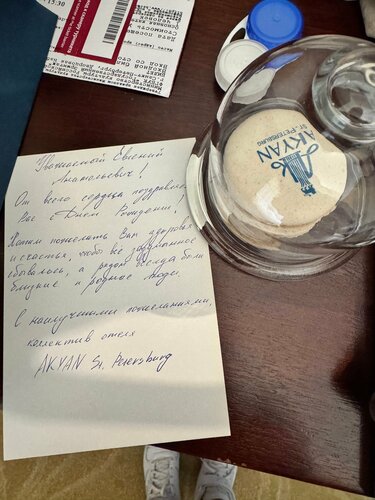 Уважаемый Евгений
Анатольевич!
От всего сердца поздравляем
Вас с Днем Рождения!
Хотим пожелать Вам здоровья
и счастья, чтобы всё задуманное
сбывалось, а рядом всегда были
близкие и родные люди.
С наилучшими пожеланиями,
коллектив отеля
AKYAN St. Petersburg
AKYAN
ST. PETERSBURG